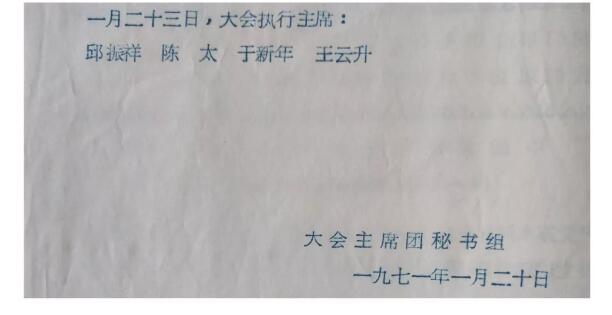 一月二十三日，大会执行主席：
邱振祥 陈 太 于新年 王云升
大会主席团秘书组
一九七一年一月二十日